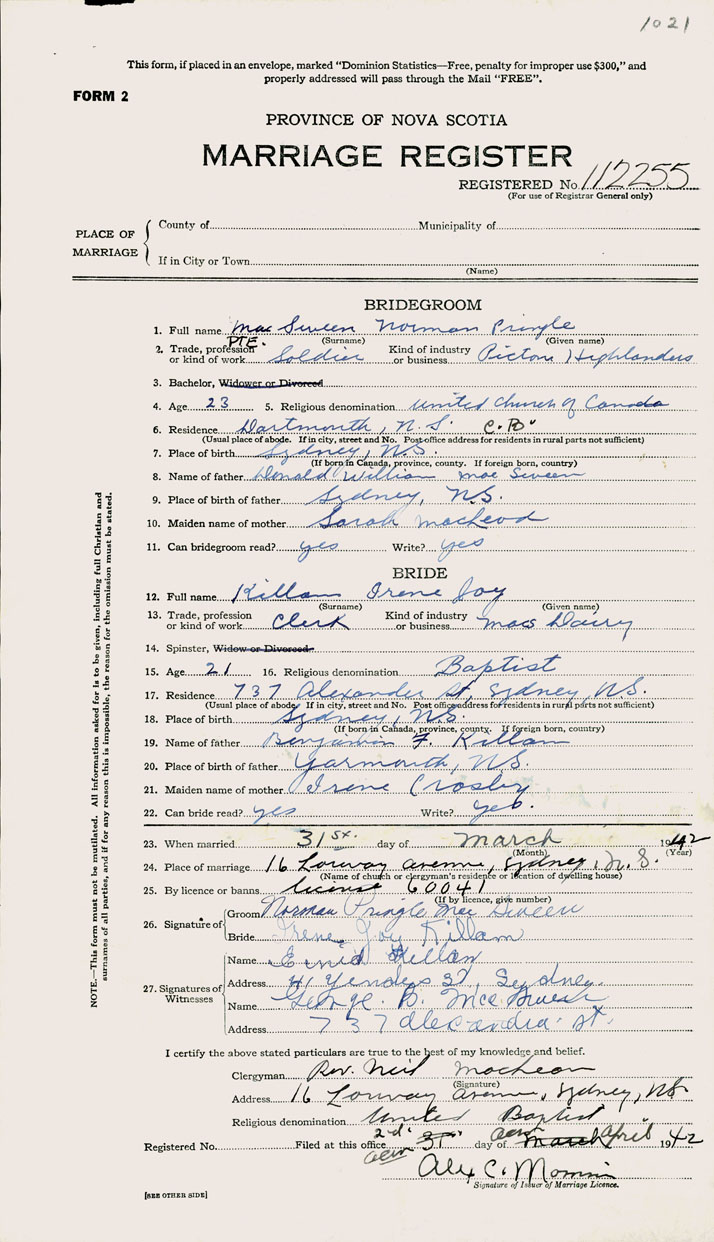 1021
This form, if placed in an envelope, marked "Dominion Statistics—Free, penalty for improper use $300," and
properly addressed will pass through the Mail "FREE".
FORM 2
PROVINCE OF NOVA SCOTIA
MARRIAGE REGISTER
REGISTERED No. 112255
(For use of Registrar General only)
PLACE OF MARRIAGE
County of Municipality of
If in City or Town
(Name)
BRIDEGROOM
1. Full name Mac Sween Norman Pringle
(Surname) (Given name)
PTE.
2. Trade, profession or kind of work Soldier Kind of industry or business Pictou Highlanders
3. Bachelor, Widower or Divorced
4. Age 23 5. Religious denomination United Church of Canada
6. Residence Dartmouth, N.S. C.B.
(Usual place of abode. If in city, street and No. Post-office address for residents in rural parts not sufficient)
7. Place of birth Sydney, N.S.
(If born in Canada, province, county. If foreign born, country)
8. Name of father Donald William Mac Sween
9. Place of birth of father Sydney, N.S.
10. Maiden name of mother Sarah MacLeod
11. Can bridegroom read? yes Write? yes
BRIDE
12. Full name Killam Irene Joy
(Surname) (Given name)
13. Trade, profession or kind of work Clerk Kind of industry or business Macs Dairy
14. Spinster, Widow or Divorced
15. Age 21 16. Religious denomination Baptist
17. Residence 737 Alexander St, Sydney, N.S.
(Usual place of abode. If in city, street and No. Post office address for residents in rural parts not sufficient)
18. Place of birth Sydney, N.S.
(If born in Canada, province, county. If foreign born, country)
19. Name of father Benjamin F. Killam
20. Place of birth of father Yarmouth, N.S.
21. Maiden name of mother Irene Crosby
22. Can bride read? yes Write? yes.
23. When married 31st. day of March 1942
(Month) (Year)
24. Place of marriage 16 Louway Avenue, Sydney, N.S.
(Name of church or clergyman's residence or location of dwelling house)
25. By licence or banns license 60041
(If by licence, give number)
26. Signature of
Groom Norman Pringle Mac Sween
Bride Irene Joy Killam
27. Signatures of Witnesses
Name Enid Killam
Address St, Sydney.
Name George B. Mac Sween
Address 737 Alexandra St.
I certify the above stated particulars are true to the best of my knowledge and belief.
Clergyman Rev. Neil MacLean
(Signature)
Address 16 Louway Avenue, Sydney, N.S.
Religious denomination United Baptist
2nd. acm acm
Registered No. Filed at this office 31st day of March April 1942
Alex C.
Signature of Issuer of Marriage Licence.
[SEE OTHER SIDE]
NOTE.—This form must not be mutilated. All information asked for is to be given, including full Christian and
surnames of all parties, and if for any reason this is impossible, the reason for the omission must be stated.